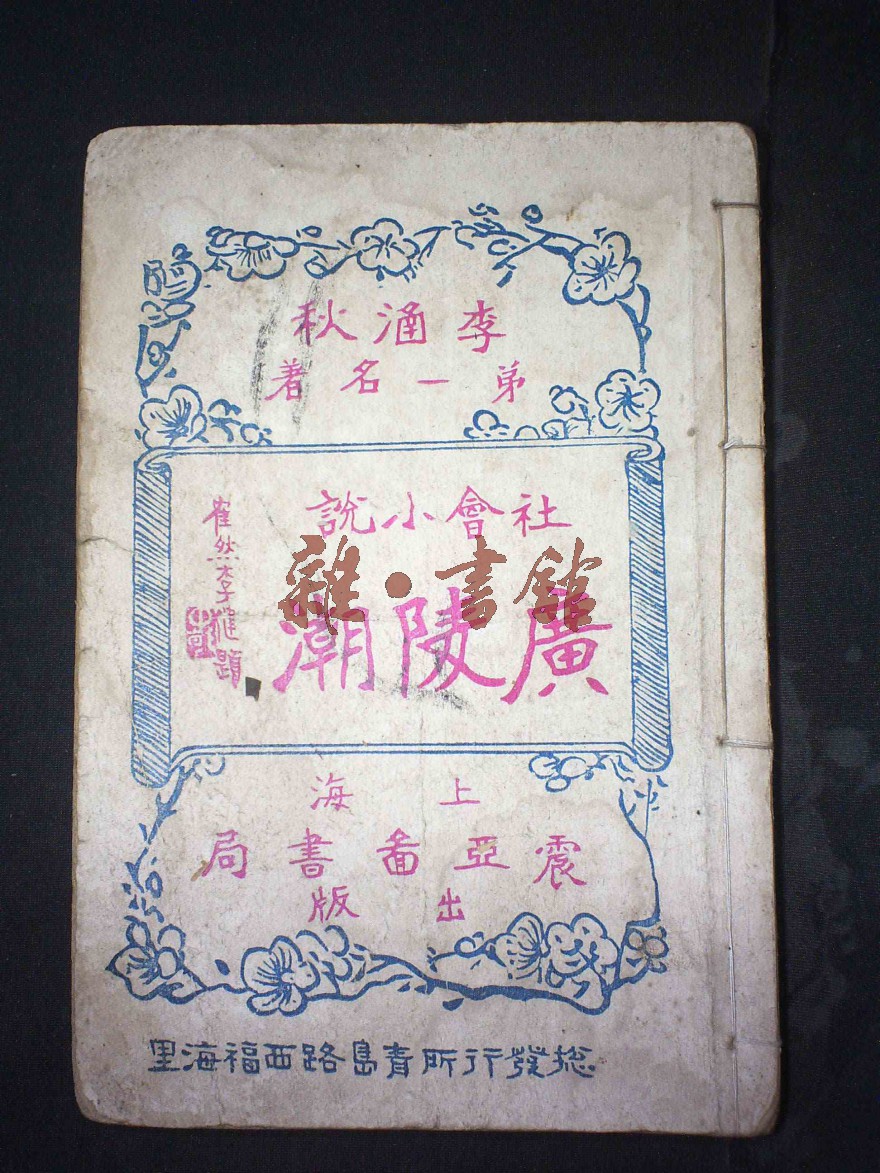 李涵秋
弟一名著
社會小說
廣陵潮
雜·書館
題
上海
震亞啚書局
出版
総發行所青島路西福海里